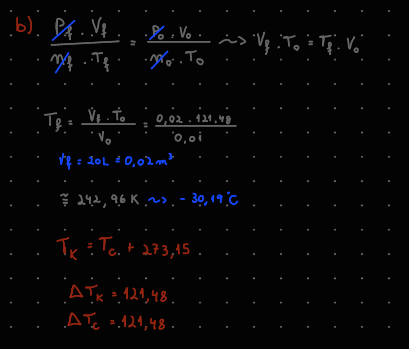 b) P_f . V_f / n_f . T_f = P_0 . V_0 / n_0 . T_0 ~> V_f . T_0 = T_f . V_0
T_f = V_f . T_0 / V_0 = 0,02 . 121,48 / 0,01
V_f = 20L = 0,02 m³
≅ 242,96 K ~> - 30,19 °C
T_K = T_C + 273,15
ΔT_K = 121,48
ΔT_C = 121,48